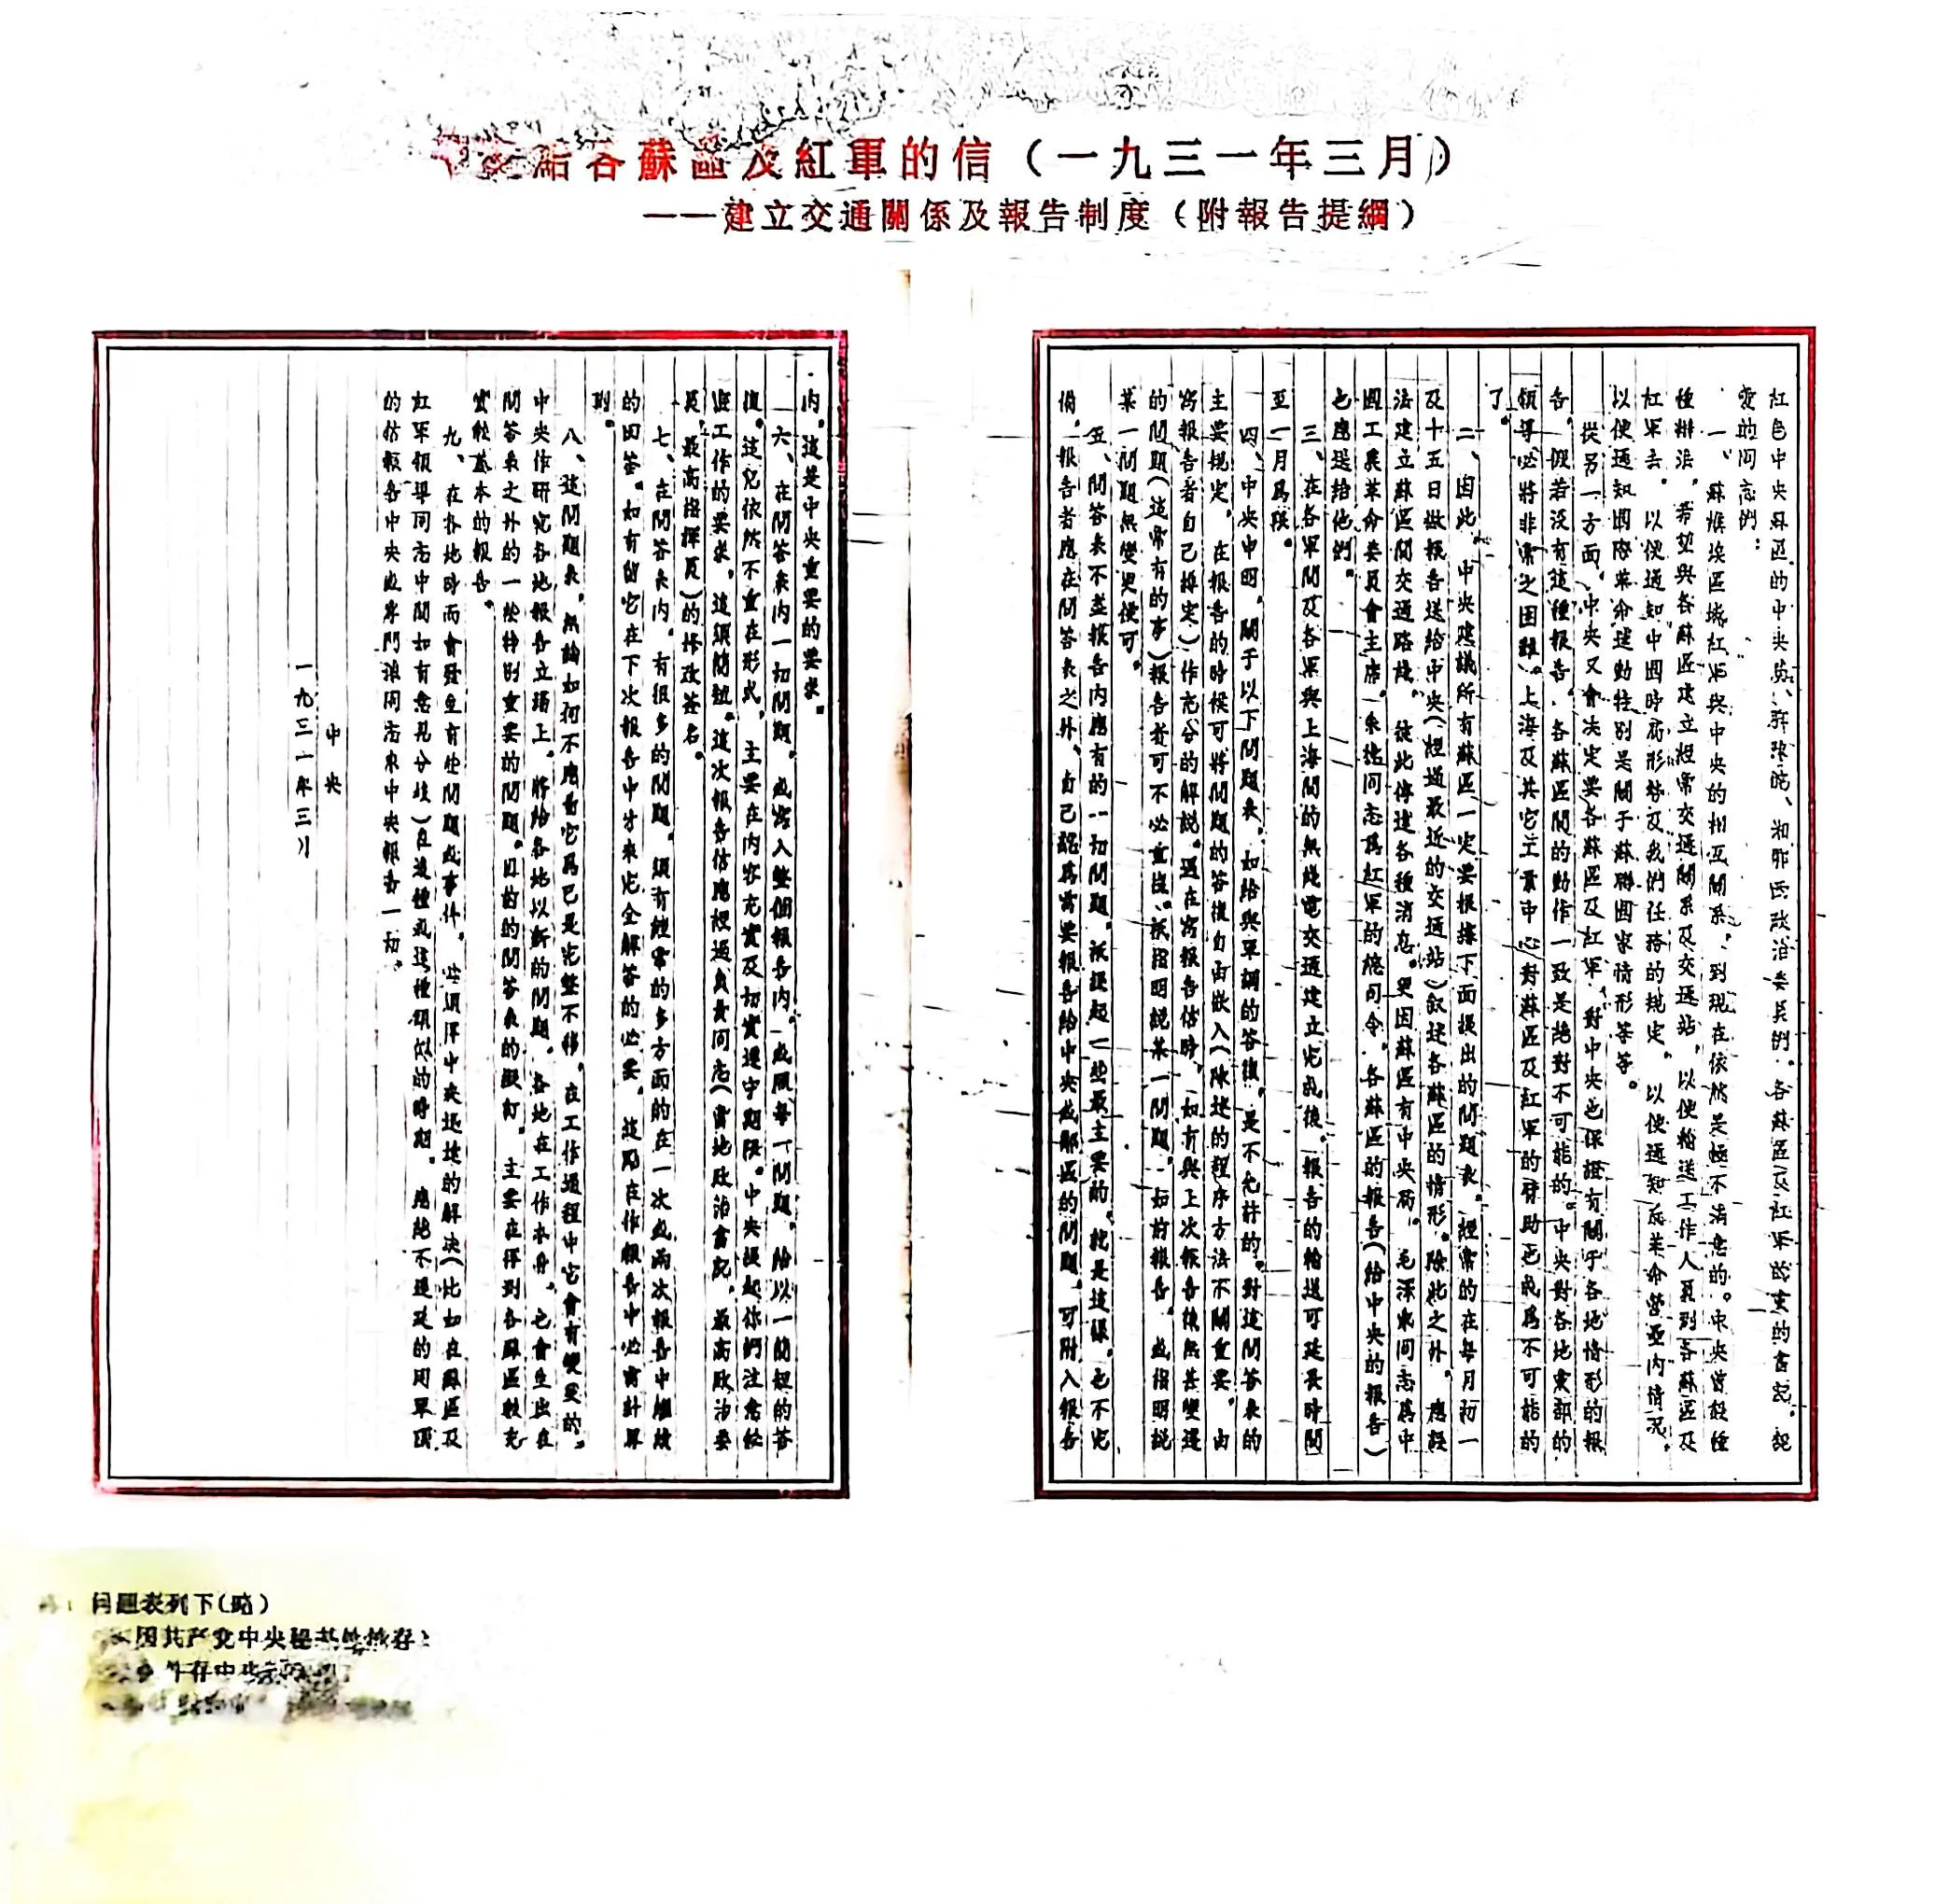 给各蘇區及紅軍的信（一九三一年三月）
——建立交通關係及報告制度（附報告提綱）
紅色中央蘇區的中央局、鄂豫皖、湘鄂西政治委員們。各蘇區及紅軍的黨的書記。親
愛的同志們：
一、蘇維埃區域紅軍與中央的相互關系，到現在依然是極不滿意的。中央曾設種
種辦法，希望與各蘇區建立經常交通關系及交通站，以便輸送工作人員到各蘇區及
紅軍去，以便通知中國時局形勢及我們任務的規定，以便通知反革命營壘內情况，
以便通知國際革命運動特别是關于蘇聯國家情形等等。
從另一方面，中央又會决定要各蘇區及紅軍，對中央也保證有關于各地情形的報
告。假若没有這種報告，各蘇區間的動作一致是絶對不可能的。中央對各地東部的
領導必將非常之困難。上海及其它主要中心對蘇區及紅軍的帮助也成爲不可能的
了。
二、因此，中央建議所有蘇區一定要根據下面提出的問題表，經常的在每月初一
及十五日做報告送給中央（經過最近的交通站）叙述各蘇區的情形。除此之外，應設
法建立蘇區間交通路綫，從此傳達各種消息。更因蘇區有中央局，毛澤東同志爲中
國工農革命委員會主席，朱德同志爲紅軍的總司令，各蘇區的報告（給中央的報告）
也應送給他們。
三、在各軍間及各軍與上海間的無綫電交通建立完成後，報告的輸送可延長時間
至一月爲限。
四、中央申明，關于以下問題表，如給與單調的答復，是不允許的。對這問答表的
主要規定，在報告的時候可將問題的答復自由嵌入（陳述的程序方法不關重要，由
寫報告者自己揀定）作充分的解説。過在寫報告估時，如有與上次報告後無甚變遷
的問題（這常有的事）報告者可不必重復，祇指明説某一問題，如前報告，或指明説
某一問題無變更便可。
五、問答表不盡報告内應有的一切問題，祇提起一些最主要的，就是這樣，也不完
備，報告者應在問答表之外，自己認爲需要報告給中央或鄰區的問題，可附入報告
内，這是中央重要的要求。
六、在問答表内一切問題，或寫入整個報告内，或照每一問題，給以一簡短的答
復。這兒依然不重在形式，主要在内容充實及切實遵守期限。中央提起你們注意於
這工作的要求，這須簡短。這次報告估應經過負責同志（當地政治書記，最高政治委
員，最高指揮員）的修改簽名。
七、在問答表内，有很多的問題，須有經常的多方面的在一次或兩次報告中繼續
的回答。如有留它在下次報告中才來完全解答的必要，這點在作報告中必需計算
到。
八、這問題表，無論如何不應看它爲已是完整不移，在工作過程中它會有變更的。
中央作研究各地報告立場上，將給各地以新的問題，各地在工作本身，也會生出在
問答表之外的一些特别重要的問題。目前的問答表的擬訂，主要在得到各蘇區較充
實較基本的報告。
九、在各地時而會發生有些問題或事件，必須得中央迅速的解决（比如在蘇區及
紅軍領導同志中間如有意見分歧）在這種或這種類似的時期，應絶不遲延的用單頁
的估報告中央或專門派同志來中央報告一切。
中央
一九三一年三月
問題表列下（略）